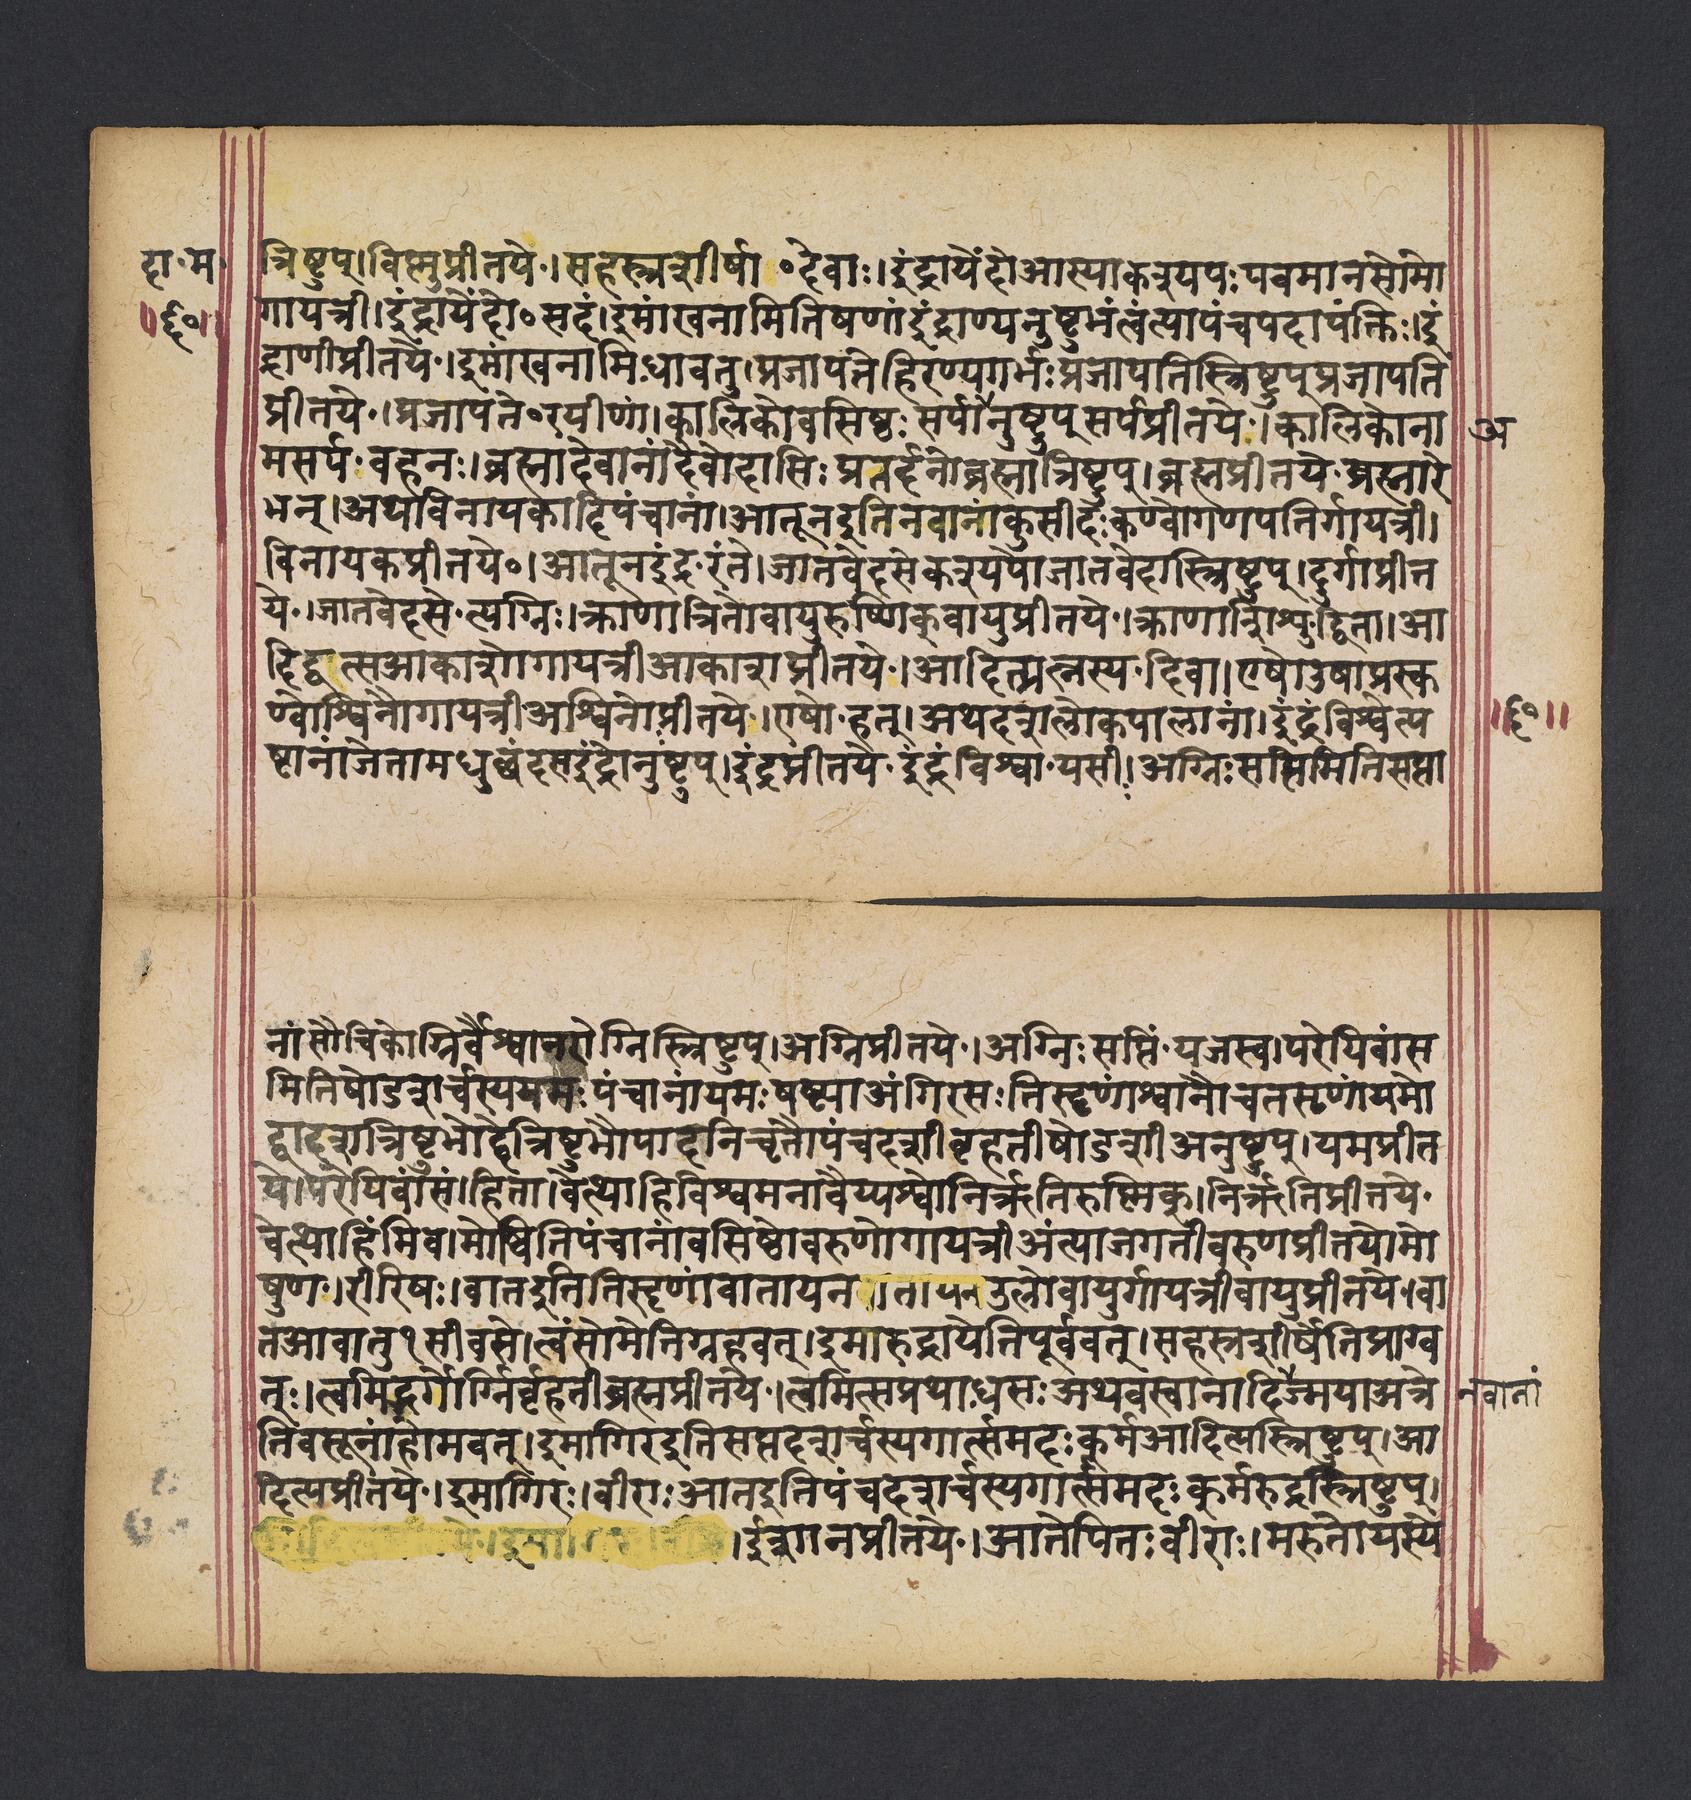 दा॰म॰
॥६०॥
त्रिष्टुप्।विष्णुप्रीतये॰।सहस्रशीर्षा॰देवाः।इंद्रायेंदोआस्याकश्यपःपवमानसोमो
गायत्री।इंद्रायेंदो॰सदं।इमांखनामितिषणांइंद्राण्यनुष्टुभंत्वंत्यापंचपदापंक्तिः।इं
द्राणीप्रीतये॰।इमांखनामि॰धावतु।प्रजापतेहिरण्यगर्भःप्रजापतिस्त्रिष्टुप्प्रजापति
प्रीतये॰।प्रजापते॰रयीणां।कालिकोवसिष्ठःसर्पानुष्टुप्सर्पप्रीतये॰।कालिकोना
अ
मसर्प॰वहनः।ब्रह्मादेवानांदैवोदासिःप्रतर्दनोब्रह्मात्रिष्टुप्।ब्रह्मप्रीतये॰ब्रह्मारे
भन्।अथविनायकादिपंचानां।आतूनइतिनवानांकुसीदःकण्वोगणपतिर्गायत्री।
विनायकप्रीतये॰।आतूनइंद्र॰रंते।जातवेदसेकश्यपोजातवेदास्त्रिष्टुप्।दुर्गाप्रीत
ये॰।जातवेदसे॰त्यग्निः।क्राणात्रितोवायुरुष्णिक्वायुप्रीतये॰।क्राणाशिशु॰द्विता।आ
दिद्वत्सआकाशोगायत्रीआकाशप्रीतये॰।आदित्प्रत्नस्य॰दिवा।एषोउषाप्रस्क
ण्वोश्विनौगायत्रीअश्विनोप्रीतये॰।एषो॰हत्।अथदशलोकपालानां।इंद्रंविश्वेत्य
॥६०॥
ष्टानांजेतामधुछंदसइंद्रोनुष्टुप्।इंद्रप्रीतये॰इंद्रंविश्वा॰यसी।अग्निःसप्तिमितिसप्ता
नांसौचिकोग्निर्वैश्वानरोग्निस्त्रिष्टुप्।अग्निप्रीतये॰।अग्निःसप्तिं॰यजस्व।परेयिवांस
मितिषोडशर्चस्ययमःपंचानांयमःषष्ठ्याअंगिरसःतिसृणांश्वानौचतसृणांयमो
द्वादशत्रिष्टुभोद्वेत्रिष्टुभौपादनिचृतौपंचदशीबृहतीषोडशीअनुष्टुप्।यमप्रीत
ये।परेयिवांसं।हिता।वेत्थाहिविश्वमनावैय्यश्वोनिर्ऋतिरुष्णिक्।निर्ऋतिप्रीतये॰
वेत्थाहिं॰मिव।मोष्वितिपंचानांवसिष्ठोवरुणोगायत्रीअंत्याजगतीवरुणप्रीतये।मो
षुण॰।रीरिषः।वातइतितिसृणांवातायनउलोवायुर्गायत्रीवायुप्रीतये।वा
तआवातु१सीवसे।त्वंसोमेतिग्रहवत्।इमारुद्रायेतिपूर्ववत्।सहस्रशीर्षेतिप्राग्व
त्ः।त्वमिद्भर्गोर्ग्निर्बृहतीब्रह्मप्रीतये॰।त्वमित्सप्रथा॰धसःअथवस्वानादिज्मयाअत्रे
नवानां
तिवसूनांहोमवत्।इमागिरइतिसप्तदशर्चस्यगार्त्समदःकूर्मआदित्यस्त्रिष्टुप्।आ
दित्यप्रीतये॰।इमागिरः।वीराःआतइतिपंचदशर्चस्यगार्त्समदःकुर्मरुद्रस्त्रिष्टुप्।
।ईशानप्रीतये॰।आतेपितःवीराः।मरुतोयस्ये